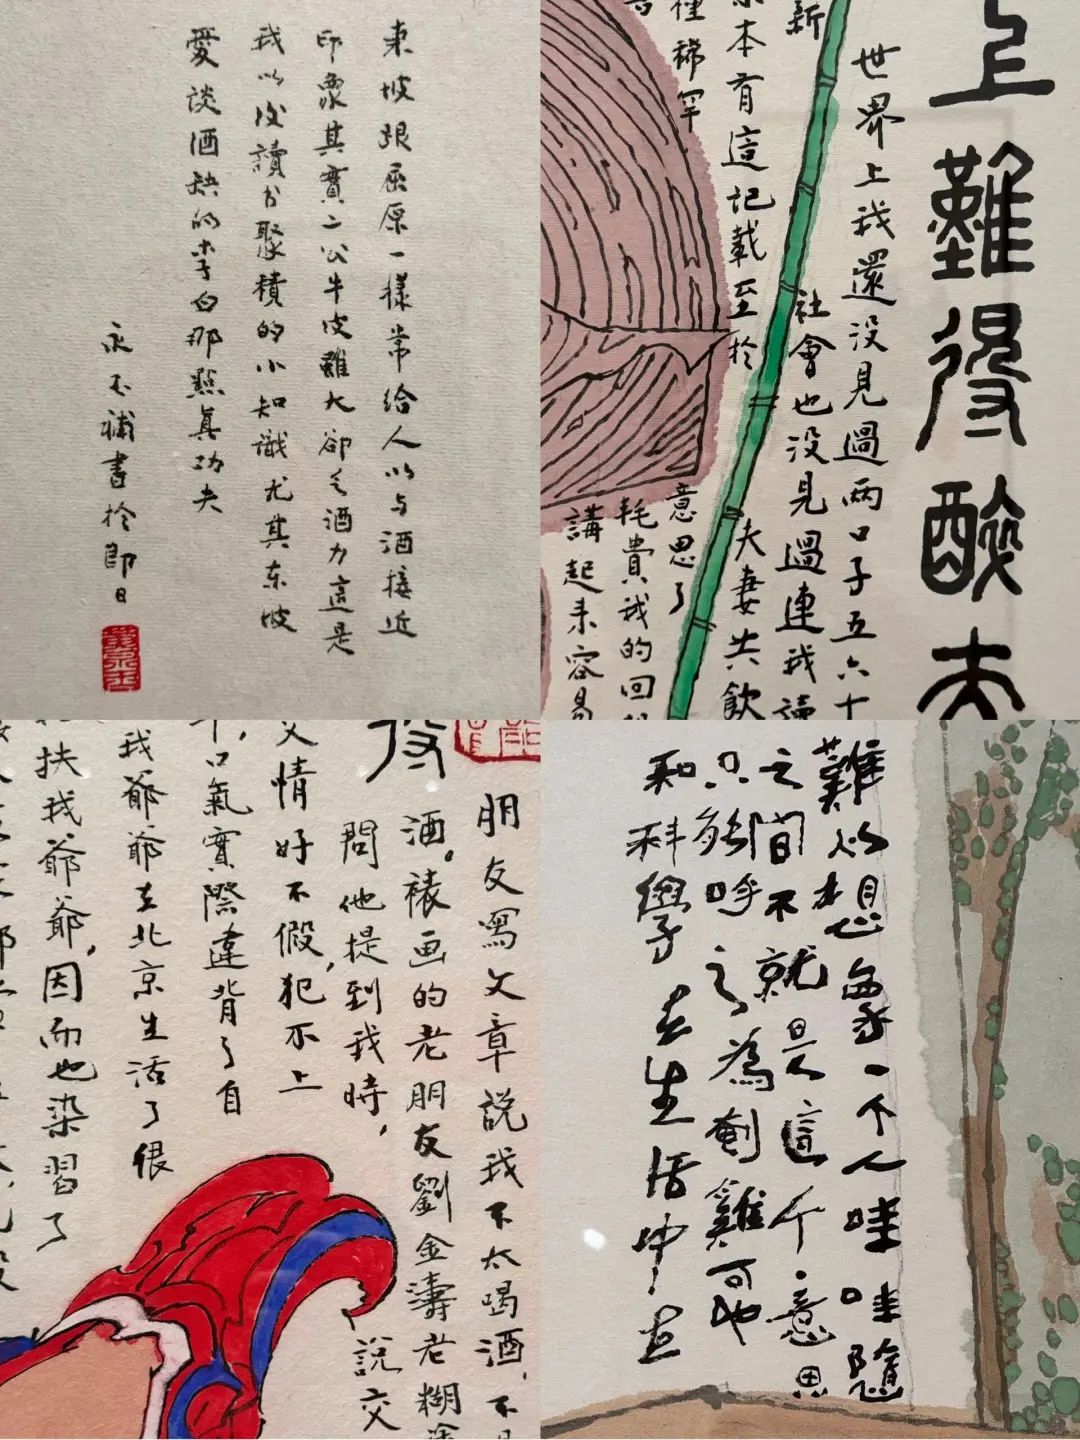 東坡跟屈原一樣常给人以与酒接近
印象其實二公牛皮雖大卻乏酒力這是
我以皮讀书聚積的小知識尤其东坡
愛談酒缺的李白那點真功夫
永玉補書於即日
上難得醉夫
世界上我還没見過兩口子五六十
社會也没見過連我讀
夫妻共飲
新
本有這記載至於
種稀罕
意思了
耗費我的回
講起来容易
朋友寫文章說我不太喝酒，不
酒。裱画的老朋友劉金濤老糊塗
問他提到我時，
說交
文情好不假，犯不上
口氣實際違背了自
我爺爺在北京生活了很
扶我爺爺，因而也染習了
難以想象一个人哇哇哇隨
之間不
就是這个意思
只能呼之為劁雞可也
和科學在生活中在